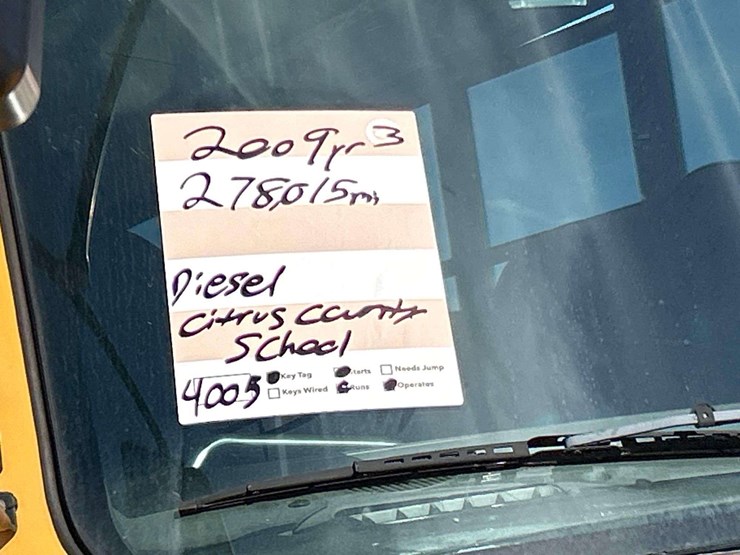 2009yr 3
278,015mi
Diesel
Citrus County
School
4005
Key Tag Starts Needs Jump
Keys Wired Runs Operates